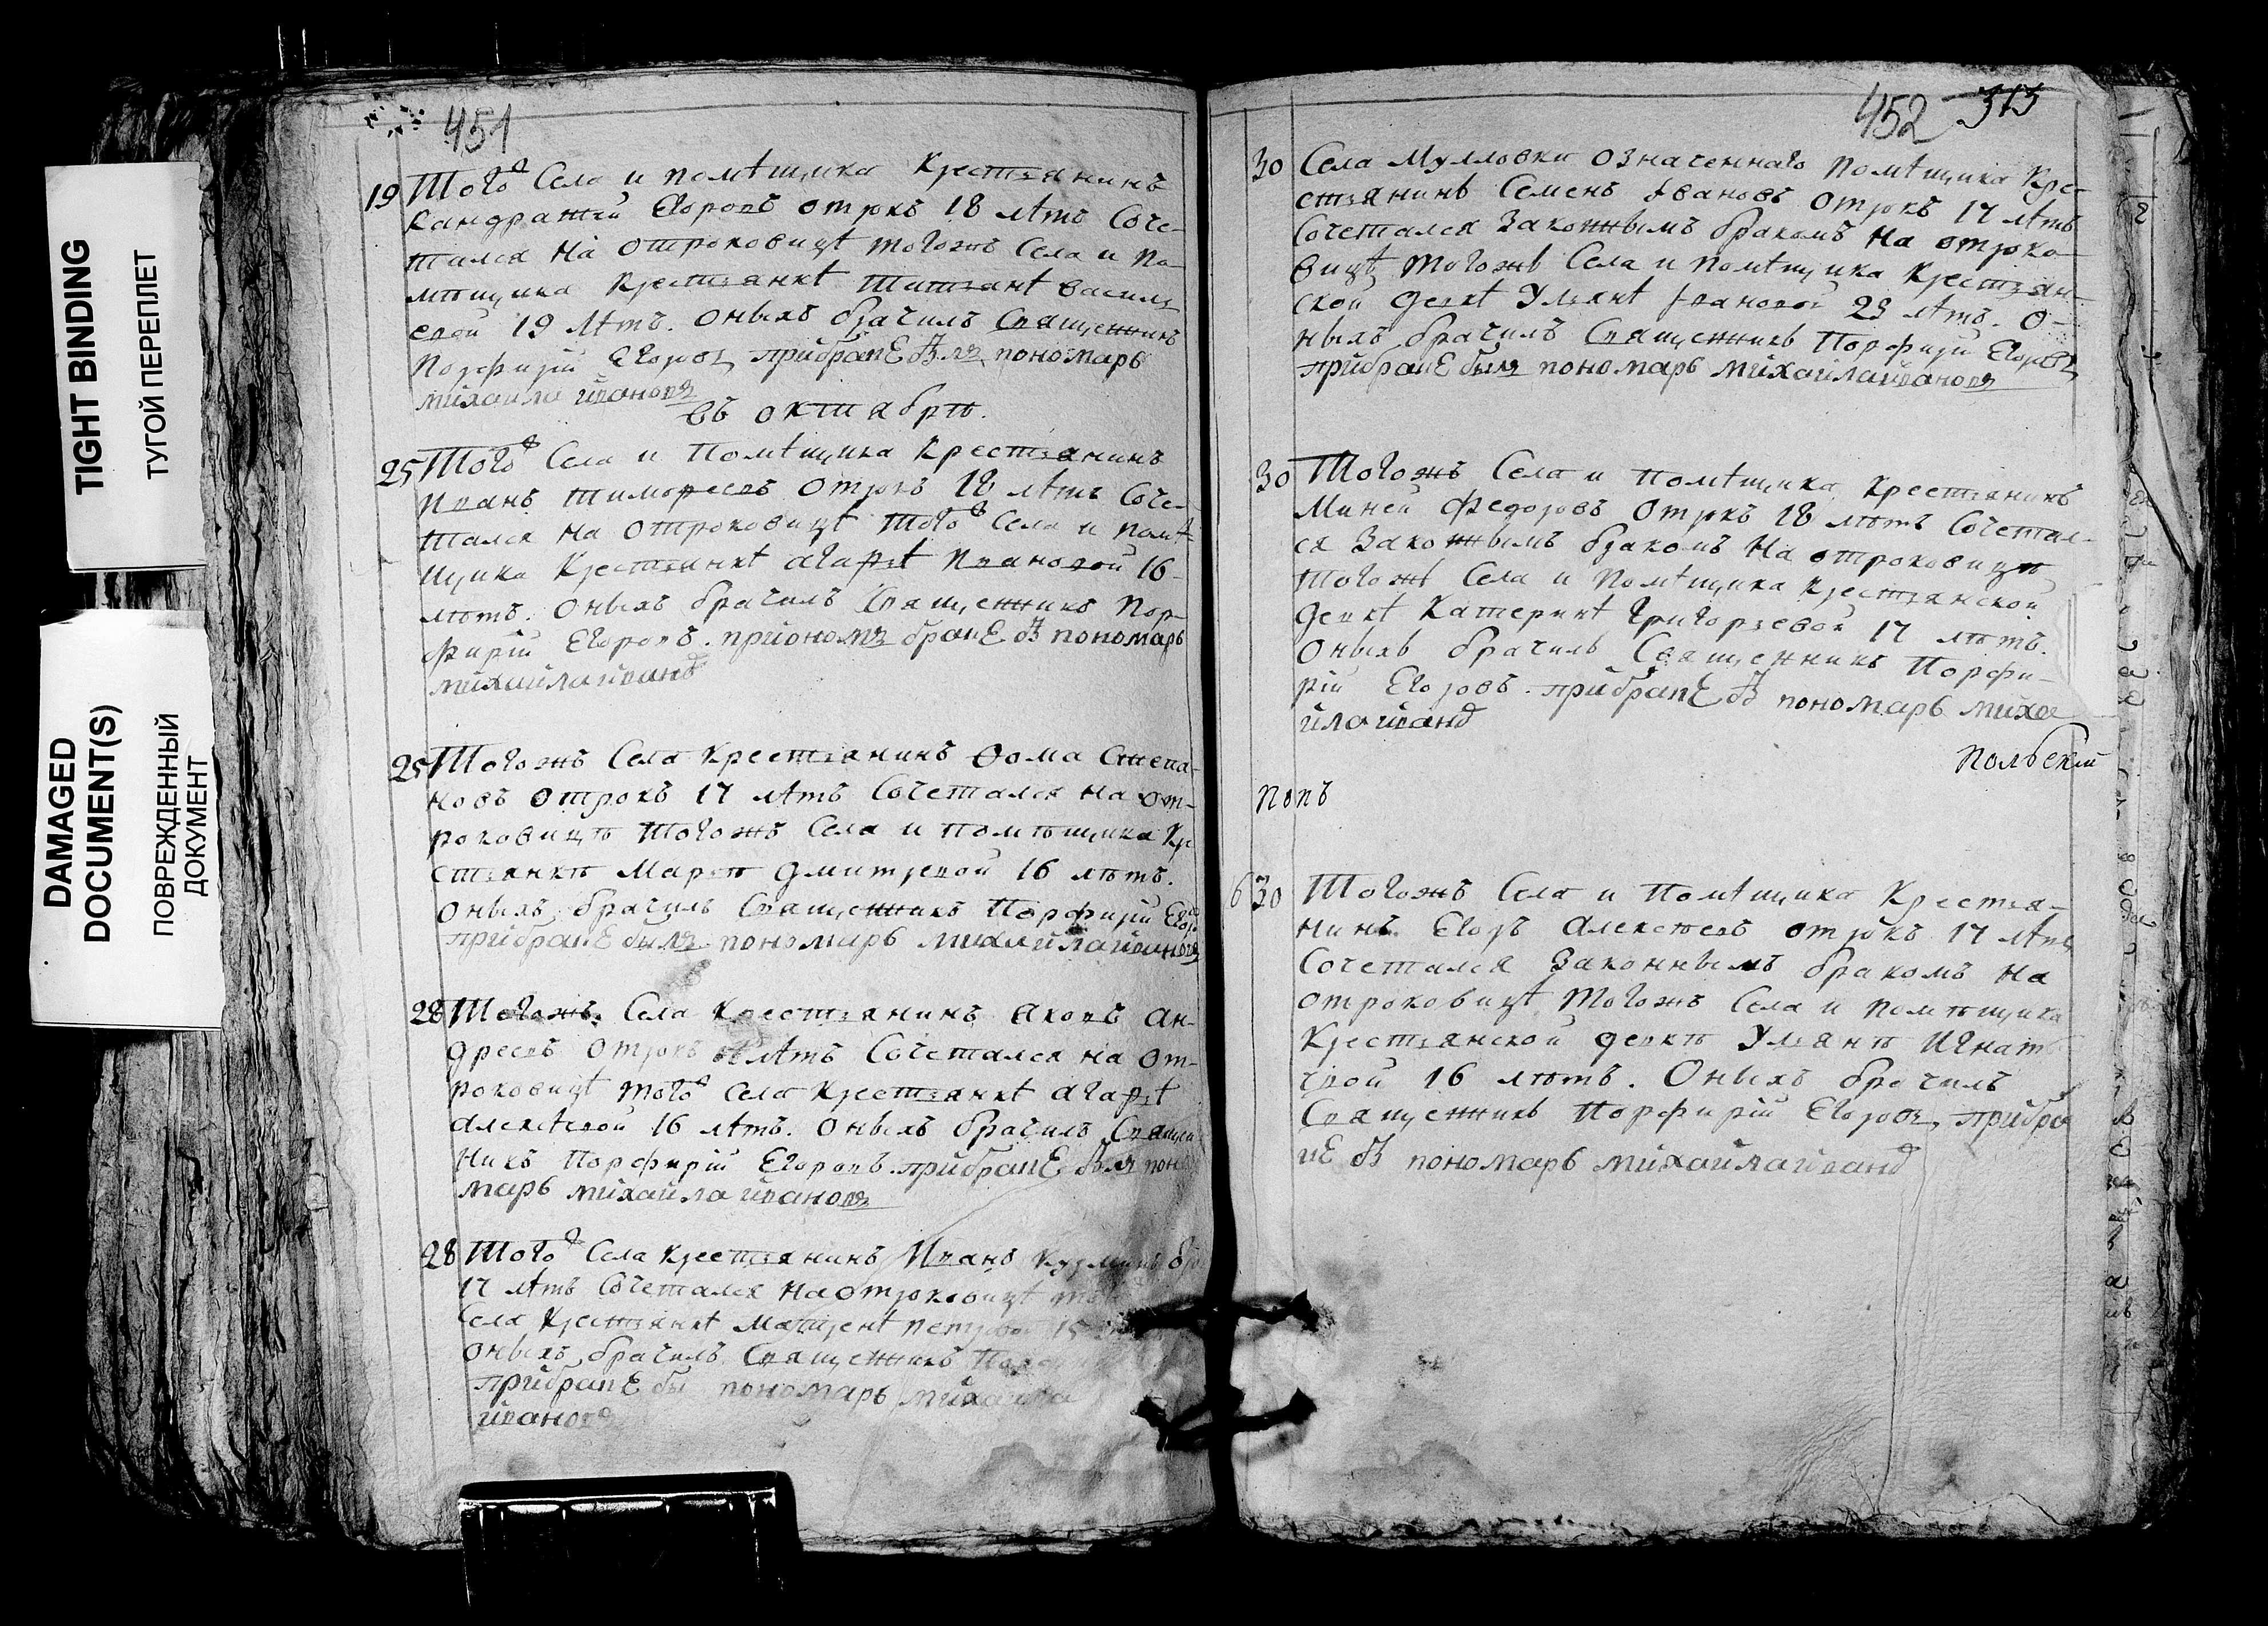 TIGHT BINDING
ТУГОЙ ПЕРЕПЛЕТ
DAMAGED
DOCUMENT(S)
ПОВРЕЖДЕННЫЙ
ДОКУМЕНТ
451
19 Того ж Села и помѣщика Крестьянинъ
Кандратей Егоровъ отрокъ 18 лѣтъ Соче-
тался на отроковицѣ тогожъ Села и по-
мпщика Крестьянкѣ Татьянѣ Василь
евой 19 лѣтъ. оныхъ брачилъ Священникъ
Порфирій Егоровъ прибраке былъ пономарь
михаила ивановъ
въ октябрѣ.
25 Того ж Села и Помѣщика Крестьянинъ
Иванъ Тимофеевъ отрокъ 18 лѣтъ Соче-
тался на отроковицѣ Того ж Села и помѣ
щика Крестьянкѣ Агафьѣ Ивановой 16
лѣтъ. оныхъ брачилъ Священникъ Пор-
фирій Егоровъ. приономъ браке бы пономарь
михайла иванов
25 Тогожъ Села Крестьянинъ Ѳома Степа-
новъ отрокъ 17 лѣтъ Сочетался на от-
роковицѣ Тогожъ Села и помѣщика Кре
стьянкѣ Марѳѣ Дмитревой 16 лѣтъ.
Оныхъ брачилъ Священникъ Порфирій Егор
прибраке былъ пономарь михайла ивановъ
28 Тогожъ Села Крестьянинъ Яковъ Ан-
дреевъ отрокъ лѣтъ Сочетался на от-
роковицѣ того ж Села Крестьянкѣ Агафьѣ
Алексѣевой 16 лѣтъ. оныхъ брачилъ Священ
никъ Порфирій Егоровъ. прибраке былъ поно
марь михайла ивановъ
28 Того ж Села Крестьянинъ Иванъ Кузминъ
17 лѣтъ Сочетался на отроковицѣ
Села Крестьянкѣ Матренѣ Петровой 15
оныхъ брачилъ Священникъ
прибраке бы пономарь михаила
ивановъ
452 313
30 Села Мулловки означеннаго Помѣщика Кре-
стьянинъ Семенъ Ивановъ отрокъ 17 лѣтъ
Сочетался Законнымъ бракомъ на отроко-
вицѣ тогожъ Села и помѣщика Крестьян-
ской девкѣ Ульянѣ Ивановой 23 лѣтъ. О-
ныхъ брачилъ Священникъ Порфирій Егоровъ
прибраке былъ пономарь михайла ивановъ
30 Тогожъ Села и помѣщика Крестьянинъ
Миней Федоровъ отрокъ 18 лѣтъ Сочетал-
ся Законнымъ бракомъ на отроковицѣ
тогожъ Села и помѣщика Крестьянской
девкѣ Катеринѣ Григорьевой 17 лѣтъ.
Оныхъ брачилъ Священникъ Порфи-
рій Егоровъ. прибраке бы пономарь миха
йла иванов
Польскій
Попъ
6 30 Тогожъ Села и Помѣщика Крестья-
нинъ Егоръ Алексѣевъ отрокъ 17 лѣтъ
Сочетался Законнымъ бракомъ на
отроковицѣ Тогожъ Села и помѣщика
Крестьянской девкѣ Ульянѣ Игнать
евой 16 лѣтъ. Оныхъ брачилъ
Священникъ Порфирій Егоровъ, прибра
ке бы пономарь михайла иванов